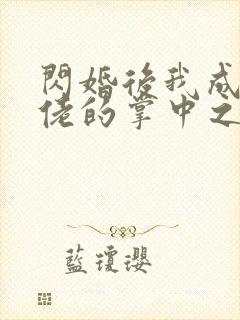 閃婚後我成
佬的掌中之
藍瓊瓔